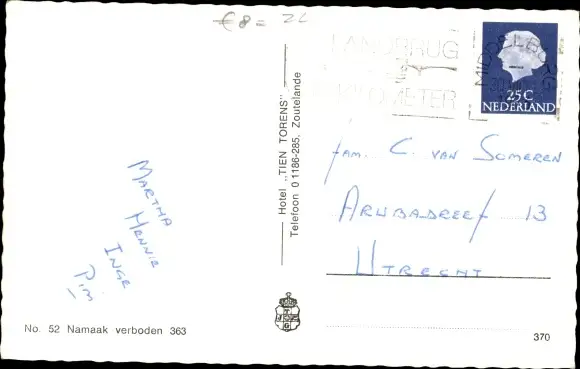 € 8 =
LANDBRUG
KILOMETER
MIDDELBURG
25 C
NEDERLAND
Hotel „TIEN TORENS”
Telefoon 0 1186-285, Zoutelande
fam. C. van Someren
Arubadreef 13
Utrecht
Martha
Hennie
Inge
Pim
T
G
No. 52 Namaak verboden 363
370